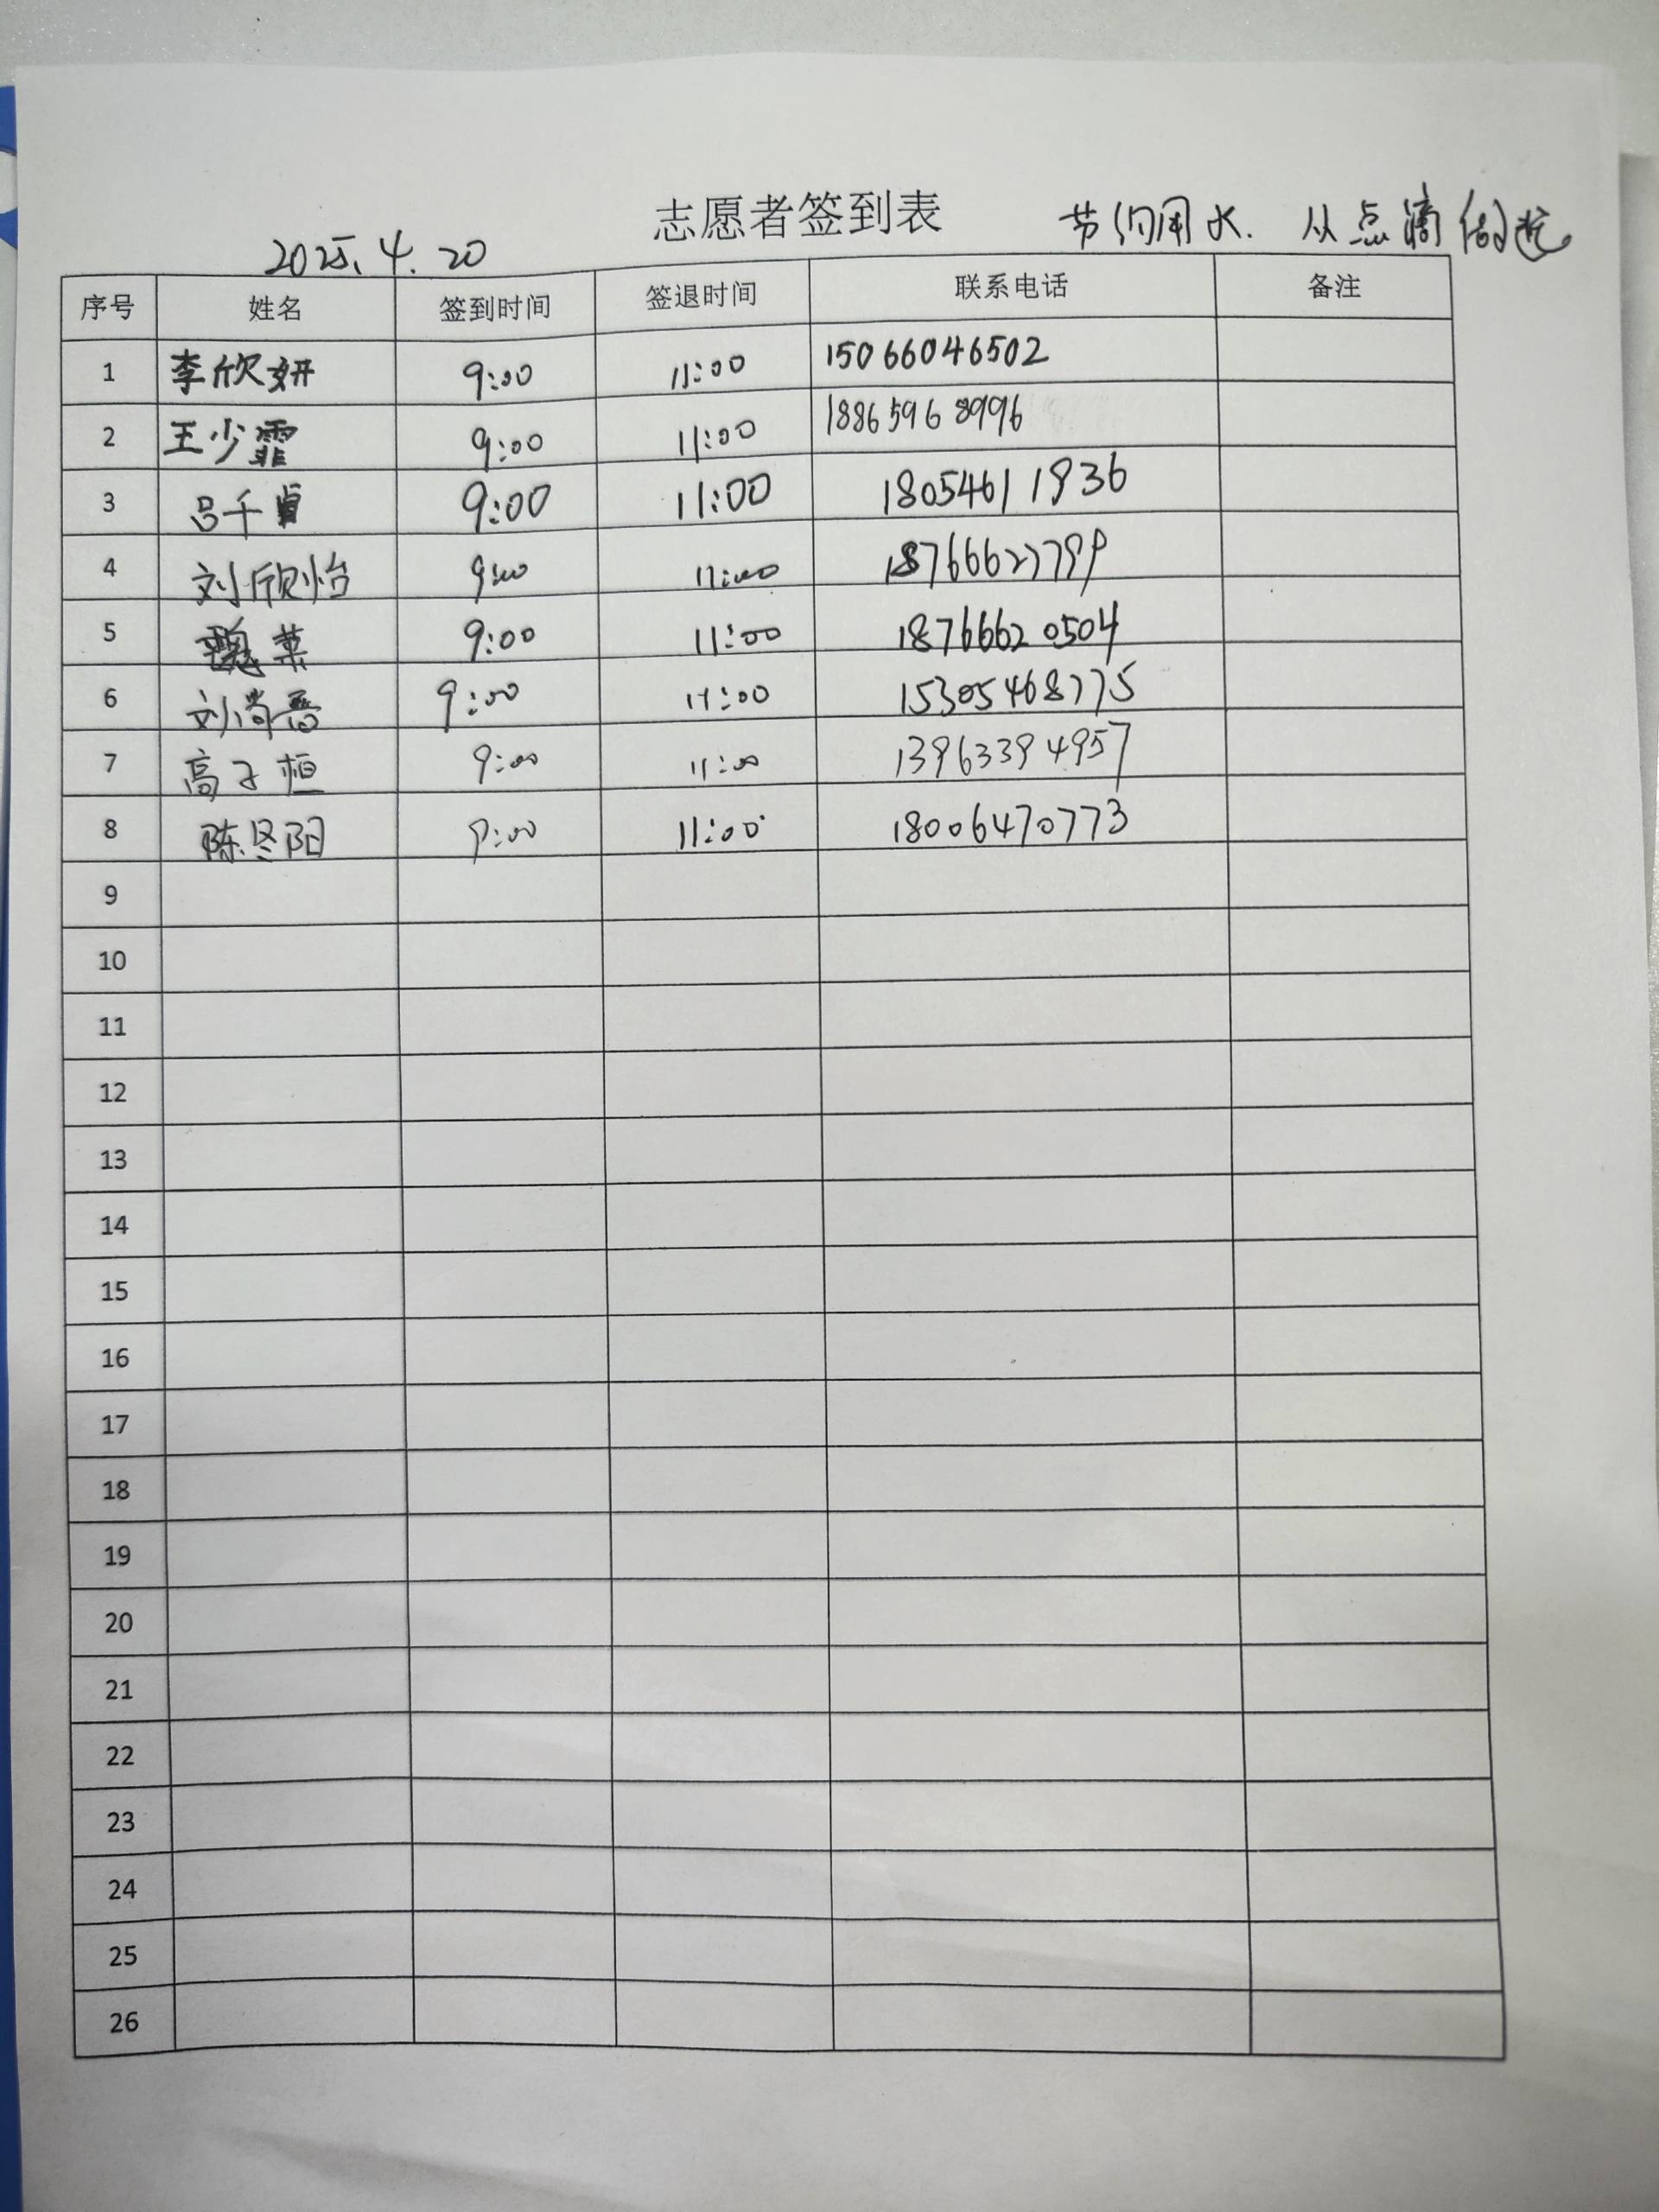 志愿者签到表 节约用水. 从点滴做起
2025.4.20
序号 姓名 签到时间 签退时间 联系电话 备注
1 李欣妍 9:00 11:00 15066046502
2 王少霏 9:00 11:00 18865968996
3 吕千贞 9:00 11:00 18054611936
4 刘欣怡 9:00 11:00
5 魏莱 9:00 11:00 18766620504
6 刘尚 9:00 11:00 15305468775
7 高子恒 9:00 11:00 13963394957
8 陈冬阳 9:00 11:00 18006470773
9
10
11
12
13
14
15
16
17
18
19
20
21
22
23
24
25
26